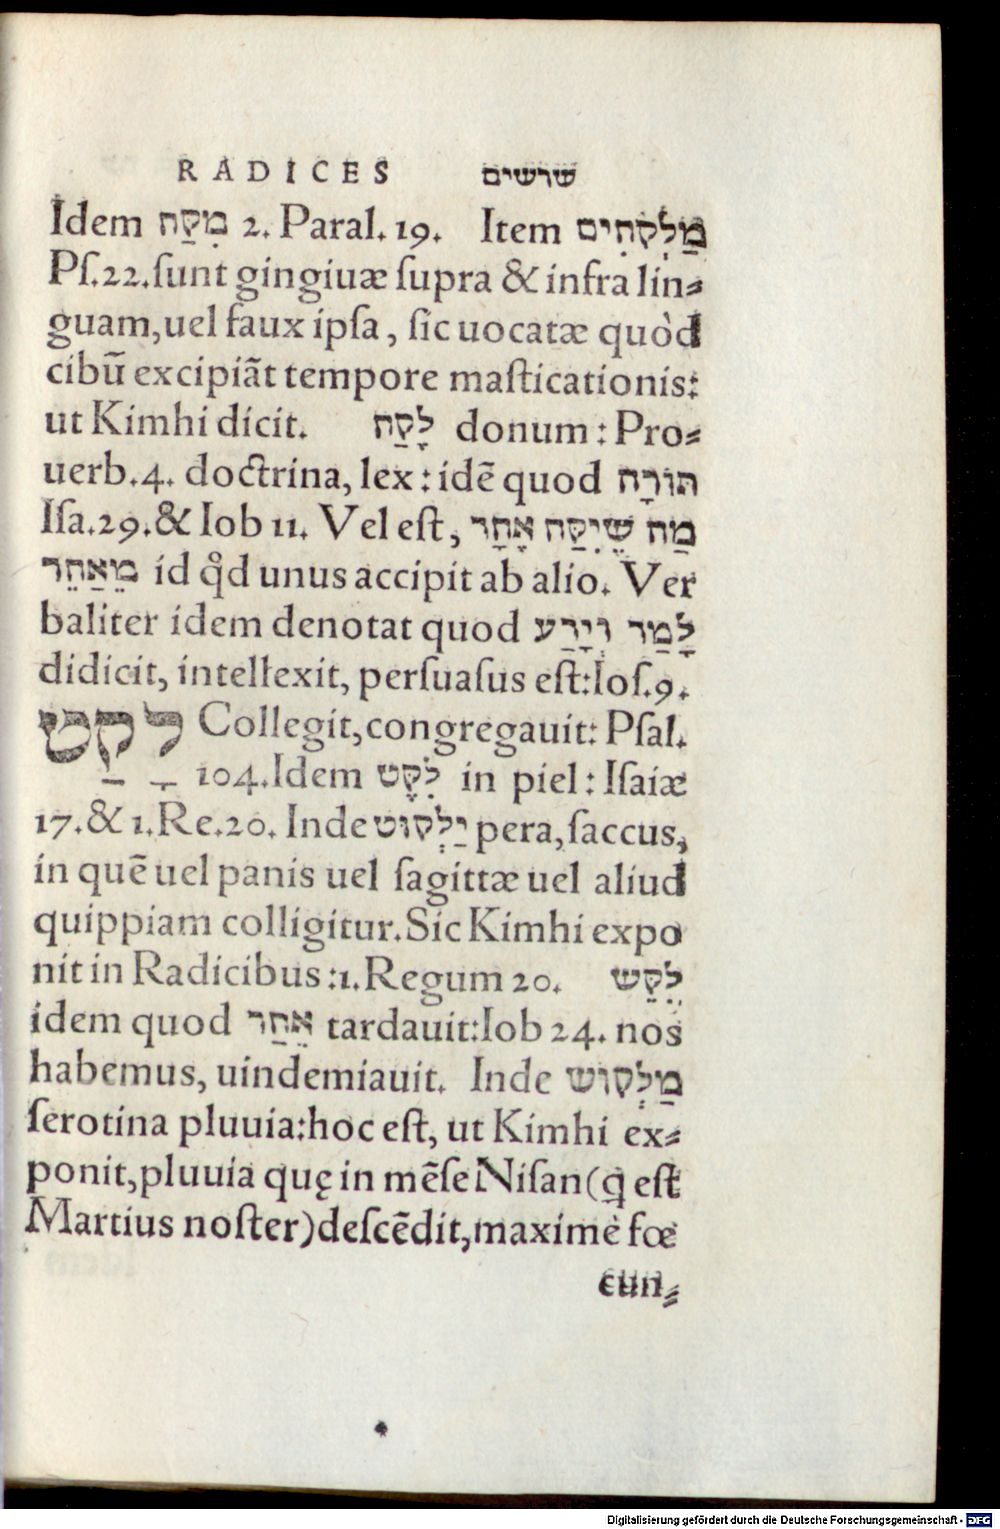 RADICES שרשים
Idem מִקַּח 2. Paral. 19. Item מַלְקֹחִים
Pſ.22.ſunt gingiuæ ſupra & infra lin⸗
guam,uel faux ipſa, ſic uocatæ quòd
cibũ excipiãt tempore maſticationis:
ut Kimhi dicit. לָקַח donum: Pro⸗
uerb.4. doctrina, lex: idẽ quod תּוֹרָה
Iſa.29.& Iob 11. Vel eſt, מַה שֶׁיִּקַּח אָחָד
מֵאַחֵר id qd unus accipit ab alio. Ver
baliter idem denotat quod לָמַד וְיָדַע
didicit, intellexit, perſuaſus eſt:Ioſ.9.
לָקַט Collegit,congregauit: Pſal.
104.Idem לִקֶּט in piel: Iſaiæ
17.& 1.Re.20. Inde יַלְקוּט pera,ſaccus,
in quẽ uel panis uel ſagittæ uel aliud
quippiam colligitur.Sic Kimhi expo
nit in Radicibus:1.Regum 20. לָקַשׁ
idem quod אֵחַר tardauit:Iob 24. nos
habemus, uindemiauit. Inde מַלְקוֹשׁ
ſerotina pluuia:hoc eſt, ut Kimhi ex⸗
ponit,pluuia quę in mẽſe Niſan(q̃ eſt
Martius noſter)deſcẽdit,maximè fœ
cun⸗
Digitalisierung gefördert durch die Deutsche Forschungsgemeinschaft - DFG